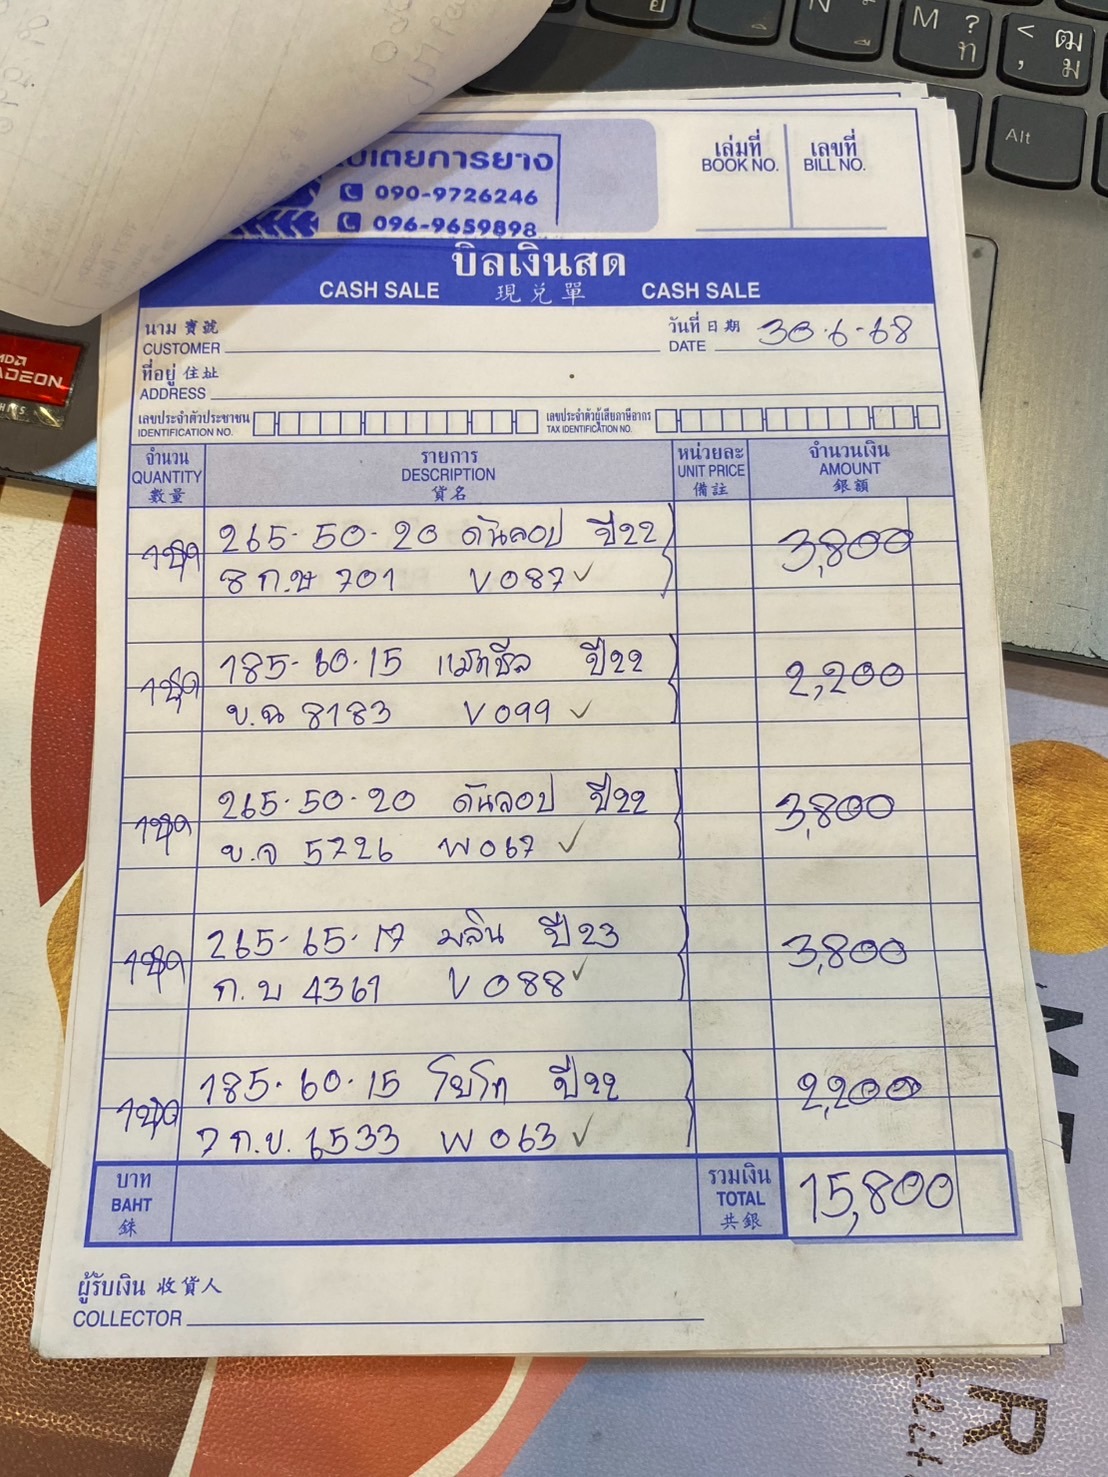 เตยการยาง
090-9726246
096-9659898
เล่มที่ เลขที่
BOOK NO. BILL NO.
บิลเงินสด
CASH SALE 現兌單 CASH SALE
นาม 寶號 วันที่ 日期 30-6-68
CUSTOMER DATE
ที่อยู่ 住址
ADDRESS
เลขประจำตัวประชาชน เลขประจำตัวผู้เสียภาษีอากร
IDENTIFICATION NO. TAX IDENTIFICATION NO.
จำนวน รายการ หน่วยละ จำนวนเงิน
QUANTITY DESCRIPTION UNIT PRICE AMOUNT
數量 貨名 備註 銀額
1ชุด 265-50-20 ดันลอป ปี22 3,800
8 ก.ษ 701 V087 ✓
1ชุด 185-60-15 แม็กซีส ปี22 2,200
ข.ฉ 8183 V099 ✓
1ชุด 265-50-20 ดันลอป ปี22 3,800
ข.จ 5726 W067 ✓
1ชุด 265-65-17 มลิน ปี23 3,800
ก.บ 4361 V088 ✓
1ชุด 185-60-15 โยโก ปี22 2,200
7 ก.ข. 6533 W063 ✓
บาท รวมเงิน
BAHT TOTAL 15,800
銖 共銀
ผู้รับเงิน 收貨人
COLLECTOR
M ? ท
< , ฒ ม
Alt
AMD
RADEON
R